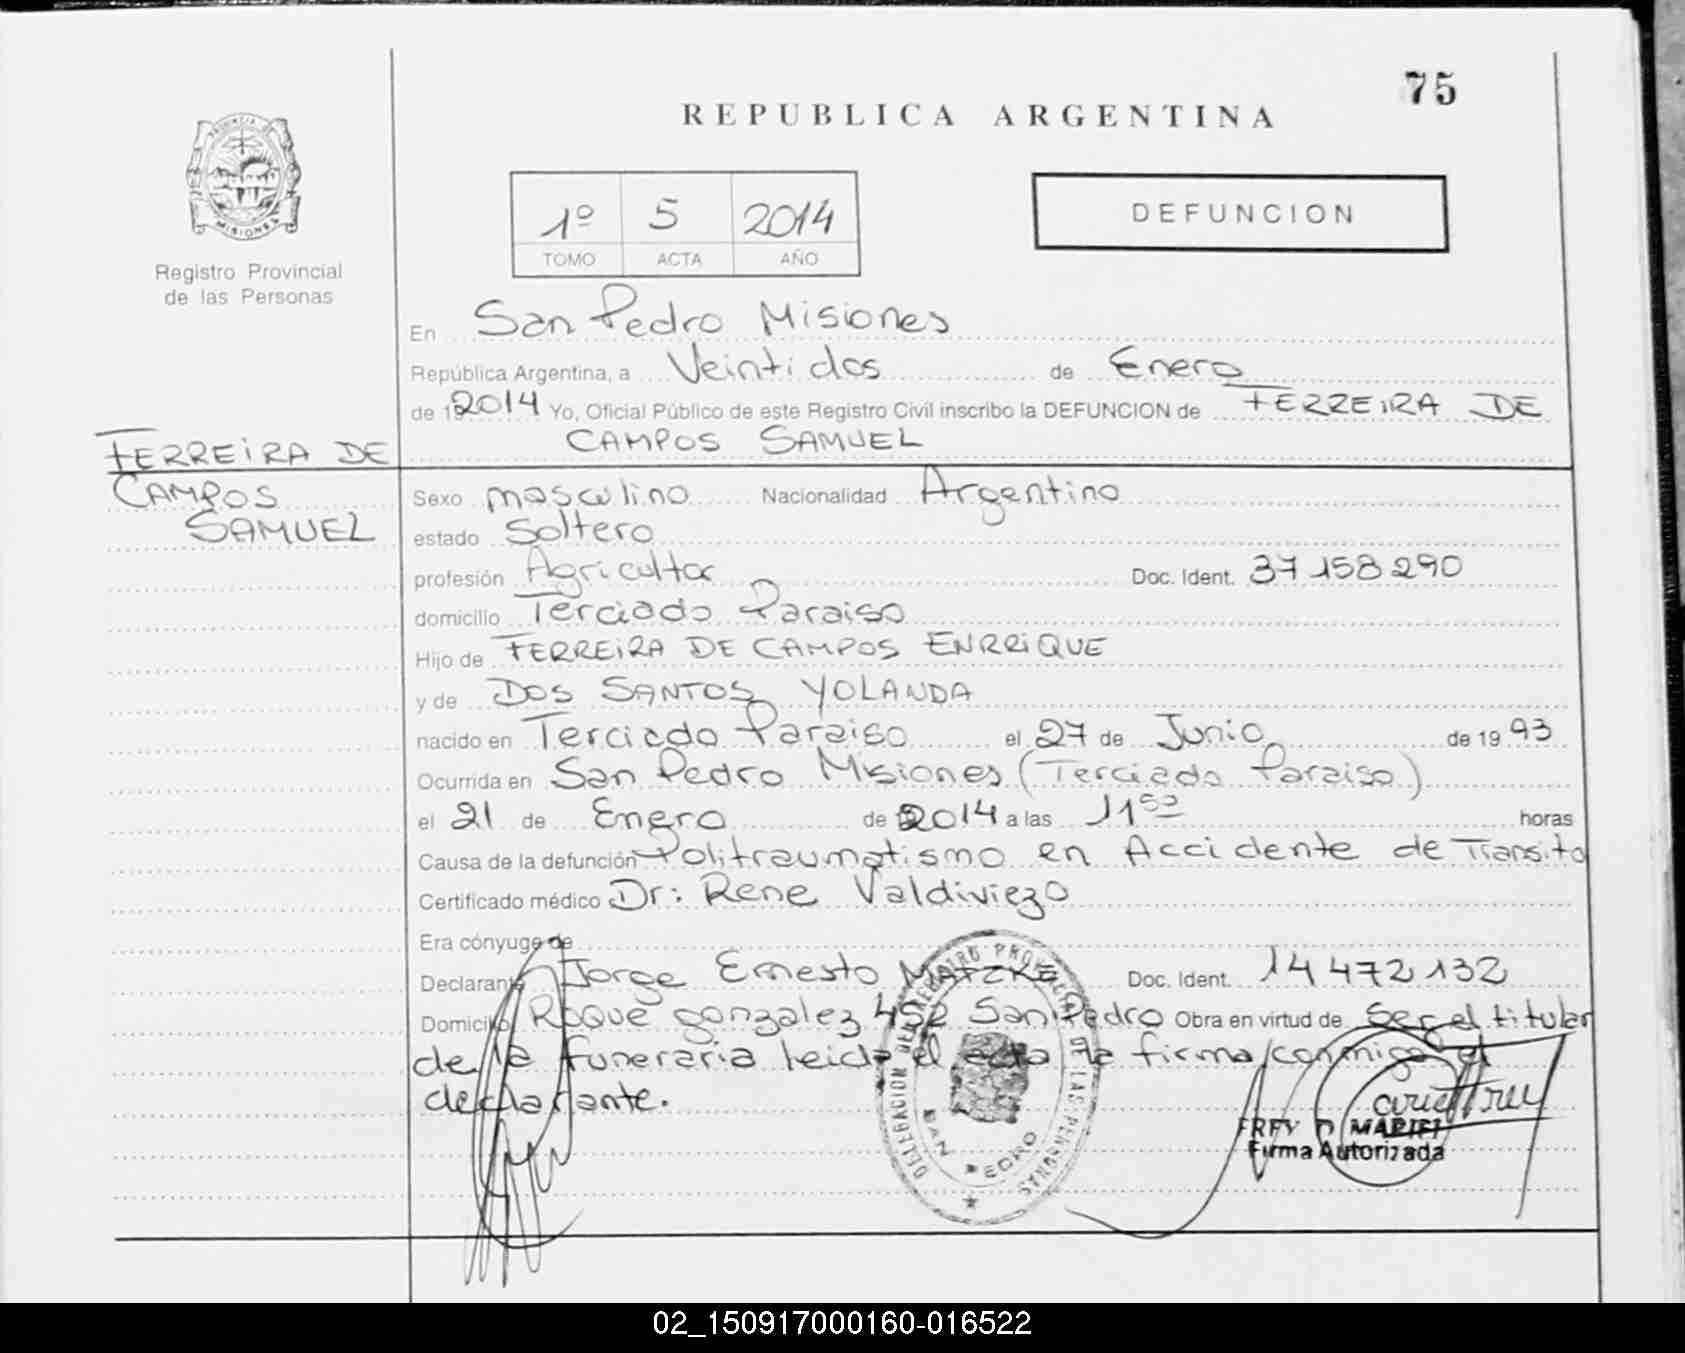 75
REPUBLICA ARGENTINA
PROVINCIA DE
MISIONES
Registro Provincial
de las Personas
1º 5 2014
TOMO ACTA AÑO
DEFUNCION
En San Pedro Misiones
República Argentina, a Veintidos de Enero
de 2014 Yo, Oficial Público de este Registro Civil inscribo la DEFUNCION de FERREIRA DE
CAMPOS SAMUEL
FERREIRA DE
CAMPOS
SAMUEL
Sexo masculino Nacionalidad Argentino
estado Soltero
profesión Agricultor Doc. Ident. 37 158 290
domicilio Terciado Paraiso
Hijo de FERREIRA DE CAMPOS ENRRIQUE
y de DOS SANTOS YOLANDA
nacido en Terciado Paraiso el 27 de Junio de 1993
Ocurrida en San Pedro Misiones (Terciado Paraiso)
el 21 de Enero de 2014 a las 11⁵⁰ horas
Causa de la defunción Politraumatismo en Accidente de Transito
Certificado médico Dr: Rene Valdiviezo
Era cónyuge de
Declarante Jorge Ernesto MATZKE Doc. Ident. 14 472 132
Domicilio Roque gonzalez 452 San Pedro Obra en virtud de Ser el titular
de la funeraria leida el acta la firma conmigo el
declarante.
DELEGACION DEL REGISTRO PROVINCIAL DE LAS PERSONAS
SAN PEDRO
FREY
Firma Autorizada
02_150917000160-016522